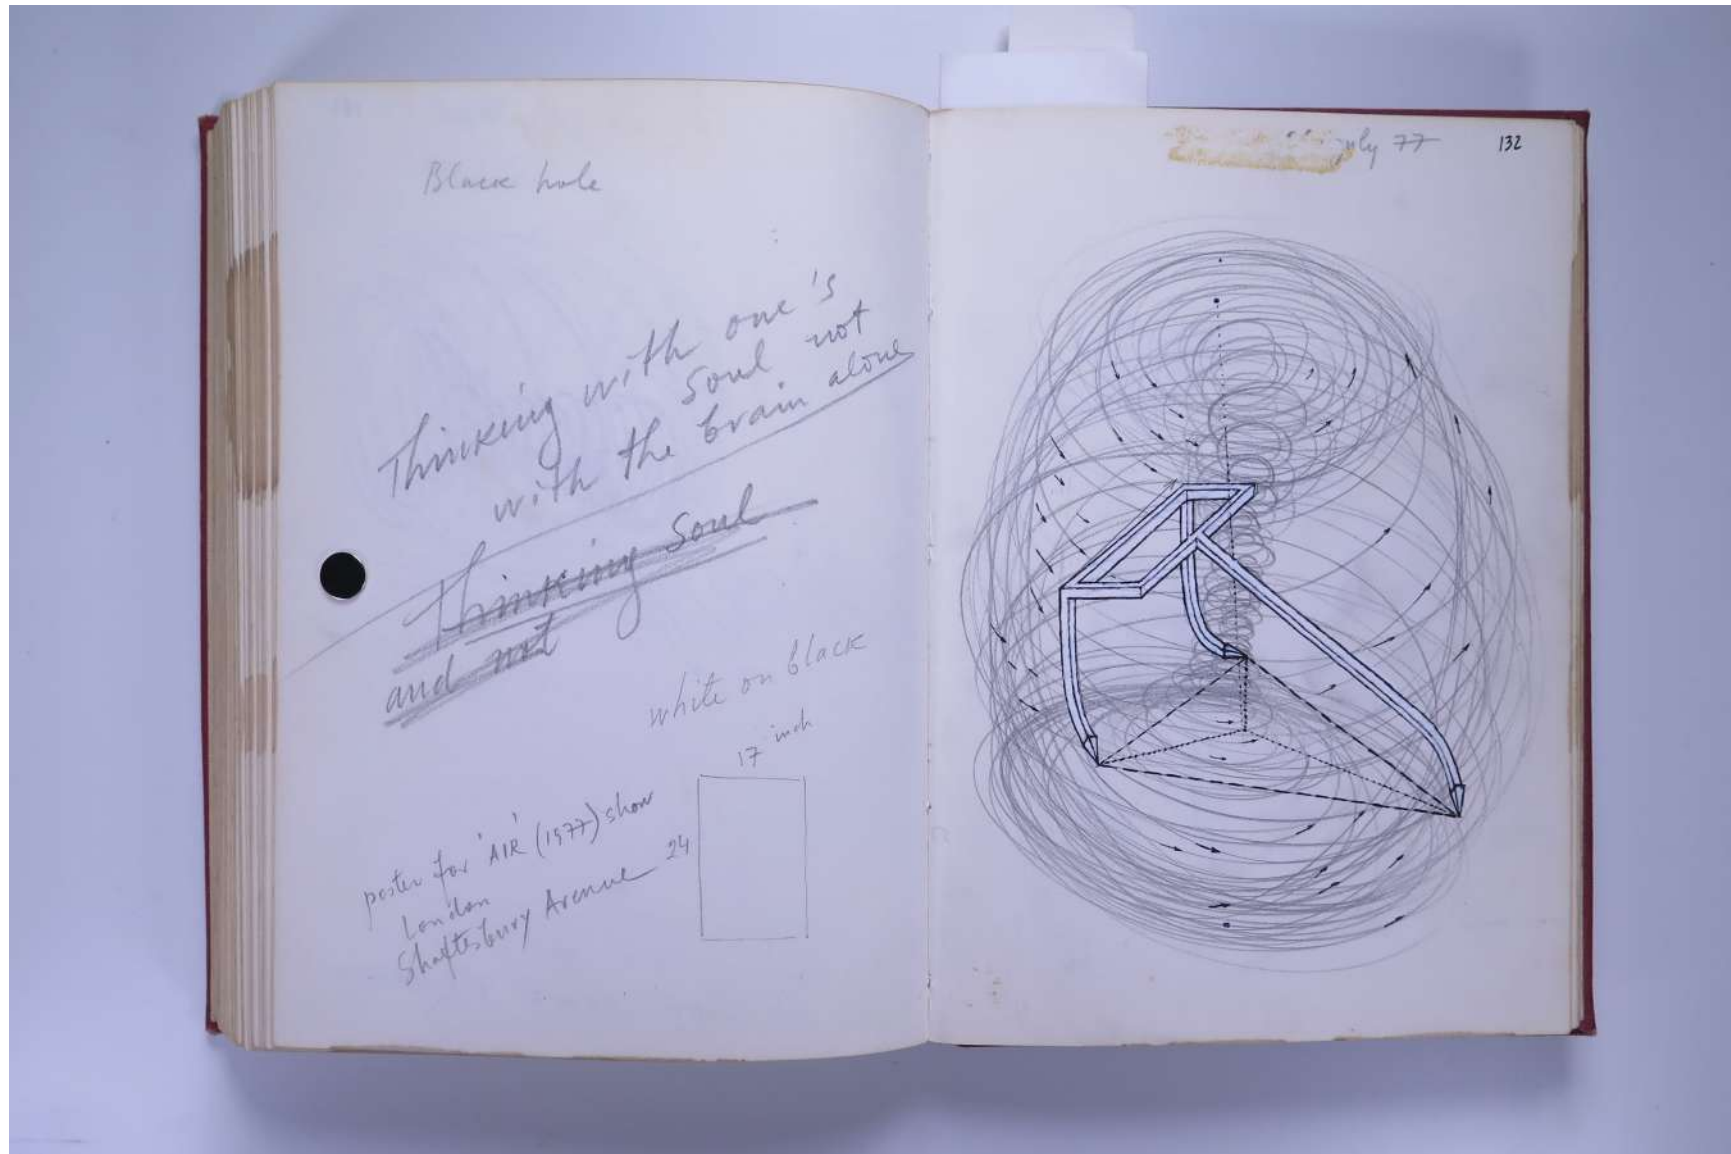 Black hole
Thinking with one's
soul not
with the brain alone
Thinking soul
and not
white on black
17 inch
24
poster for 'AIR' (1977) show
London
Shaftesbury Avenue
july 77
132